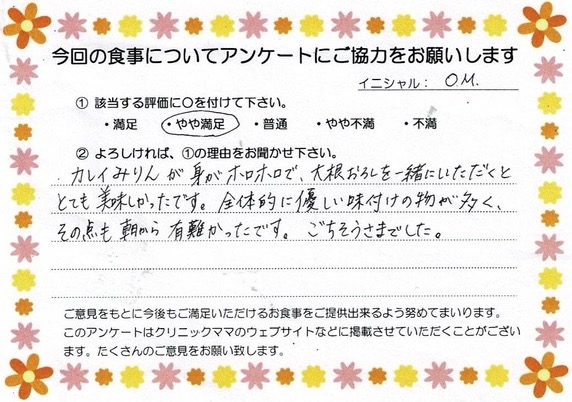 今回の食事についてアンケートにご協力をお願いします
イニシャル： O.M.
① 該当する評価に○を付けて下さい。
・満足 ・やや満足 ・普通 ・やや不満 ・不満
② よろしければ、①の理由をお聞かせ下さい。
カレイみりんが身がホロホロで、大根おろしを一緒にいただくと
とても美味しかったです。全体的に優しい味付けの物が多く、
その点も朝から有難かったです。ごちそうさまでした。
ご意見をもとに今後もご満足いただけるお食事をご提供出来るよう努めてまいります。
このアンケートはクリニックママのウェブサイトなどに掲載させていただくことがござい
ます。たくさんのご意見をお願い致します。